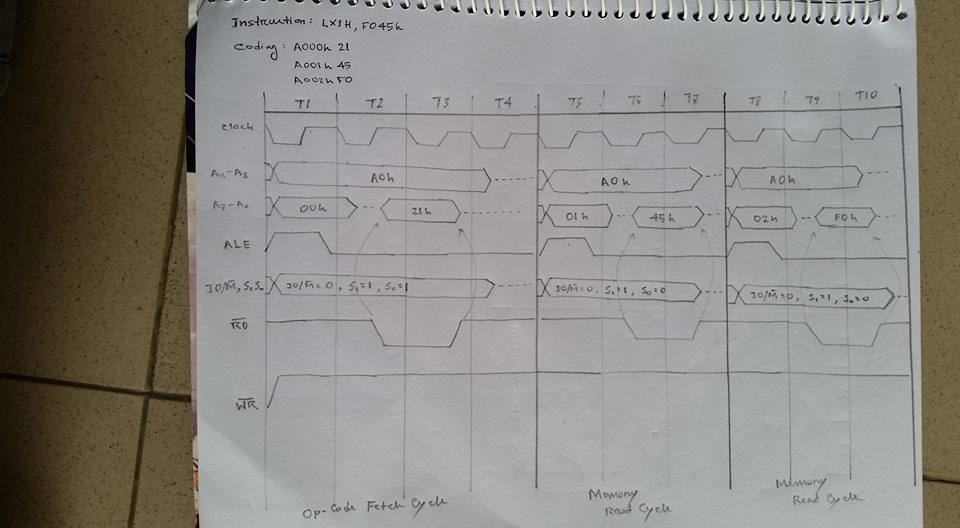 Instruction: LXIH, F045h
Coding: A000h 21
A001h 45
A002h F0
T1 T2 T3 T4 T5 T6 T7 T8 T9 T10
clock
A15-A8 A0h A0h A0h
A7-A0 00h 21h 01h 45h 02h F0h
ALE
IO/M̅, S1S0 IO/M̅=0, S1=1, S0=1 IO/M̅=0, S1=1, S0=0 IO/M̅=0, S1=1, S0=0
R̅D̅
W̅R̅
Op-Code Fetch Cycle
Memory
Read Cycle
Memory
Read Cycle